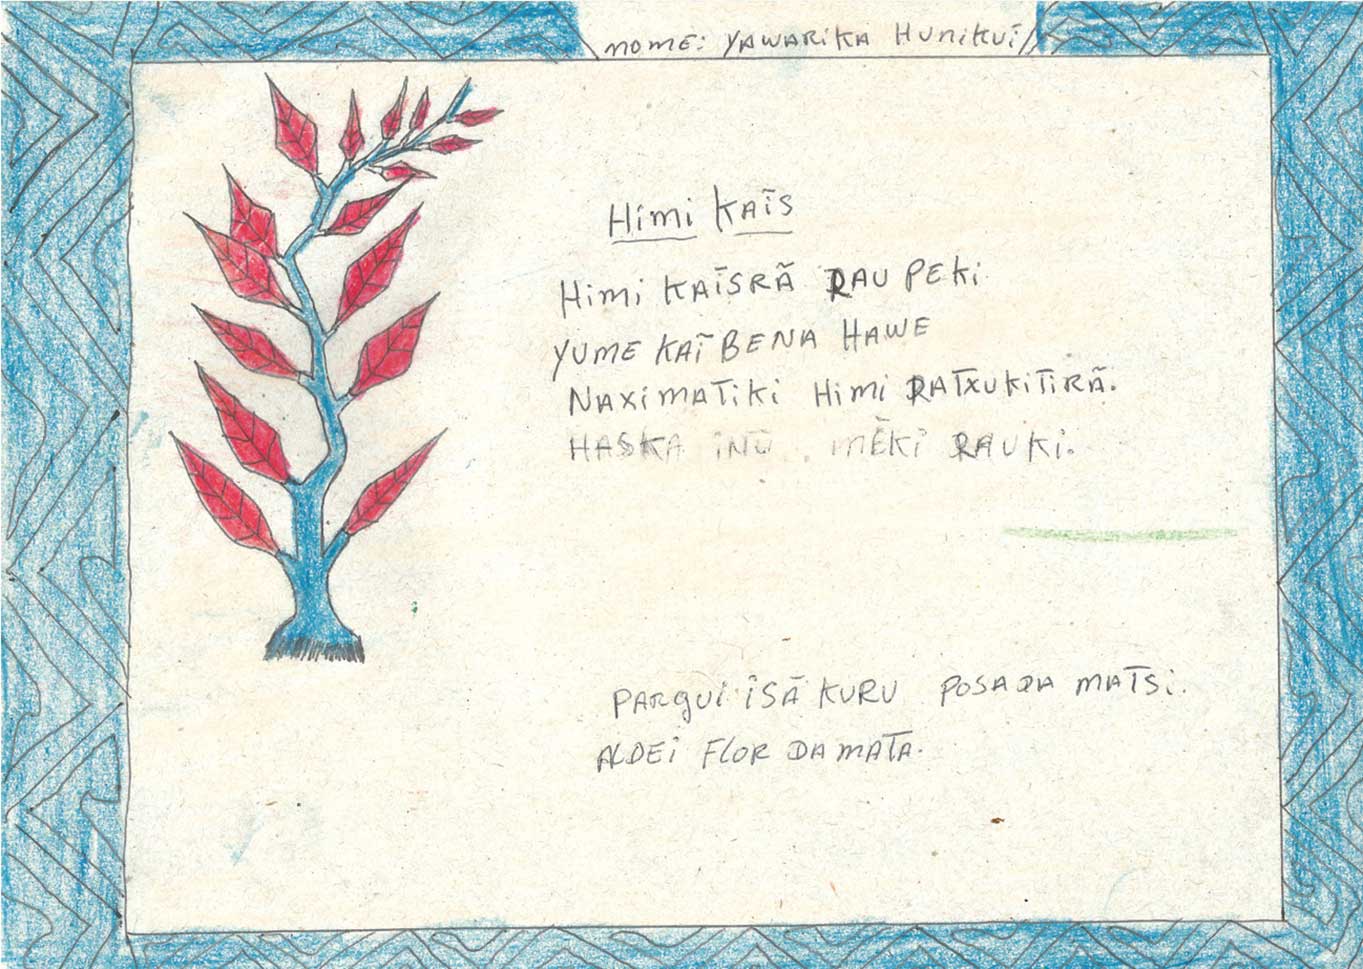 nome: Yawarika Hunikuĩ
Himi Kaĩs
Himi Kaĩsrã Rau Peki
Yume Kaĩ Bena Hawe
Naximatiki Himi Ratxukitirã.
Haska inũ. mẽki Rauki.
Pargui ĩsã Kuru Posada matsi.
Aldei Flor da mata.